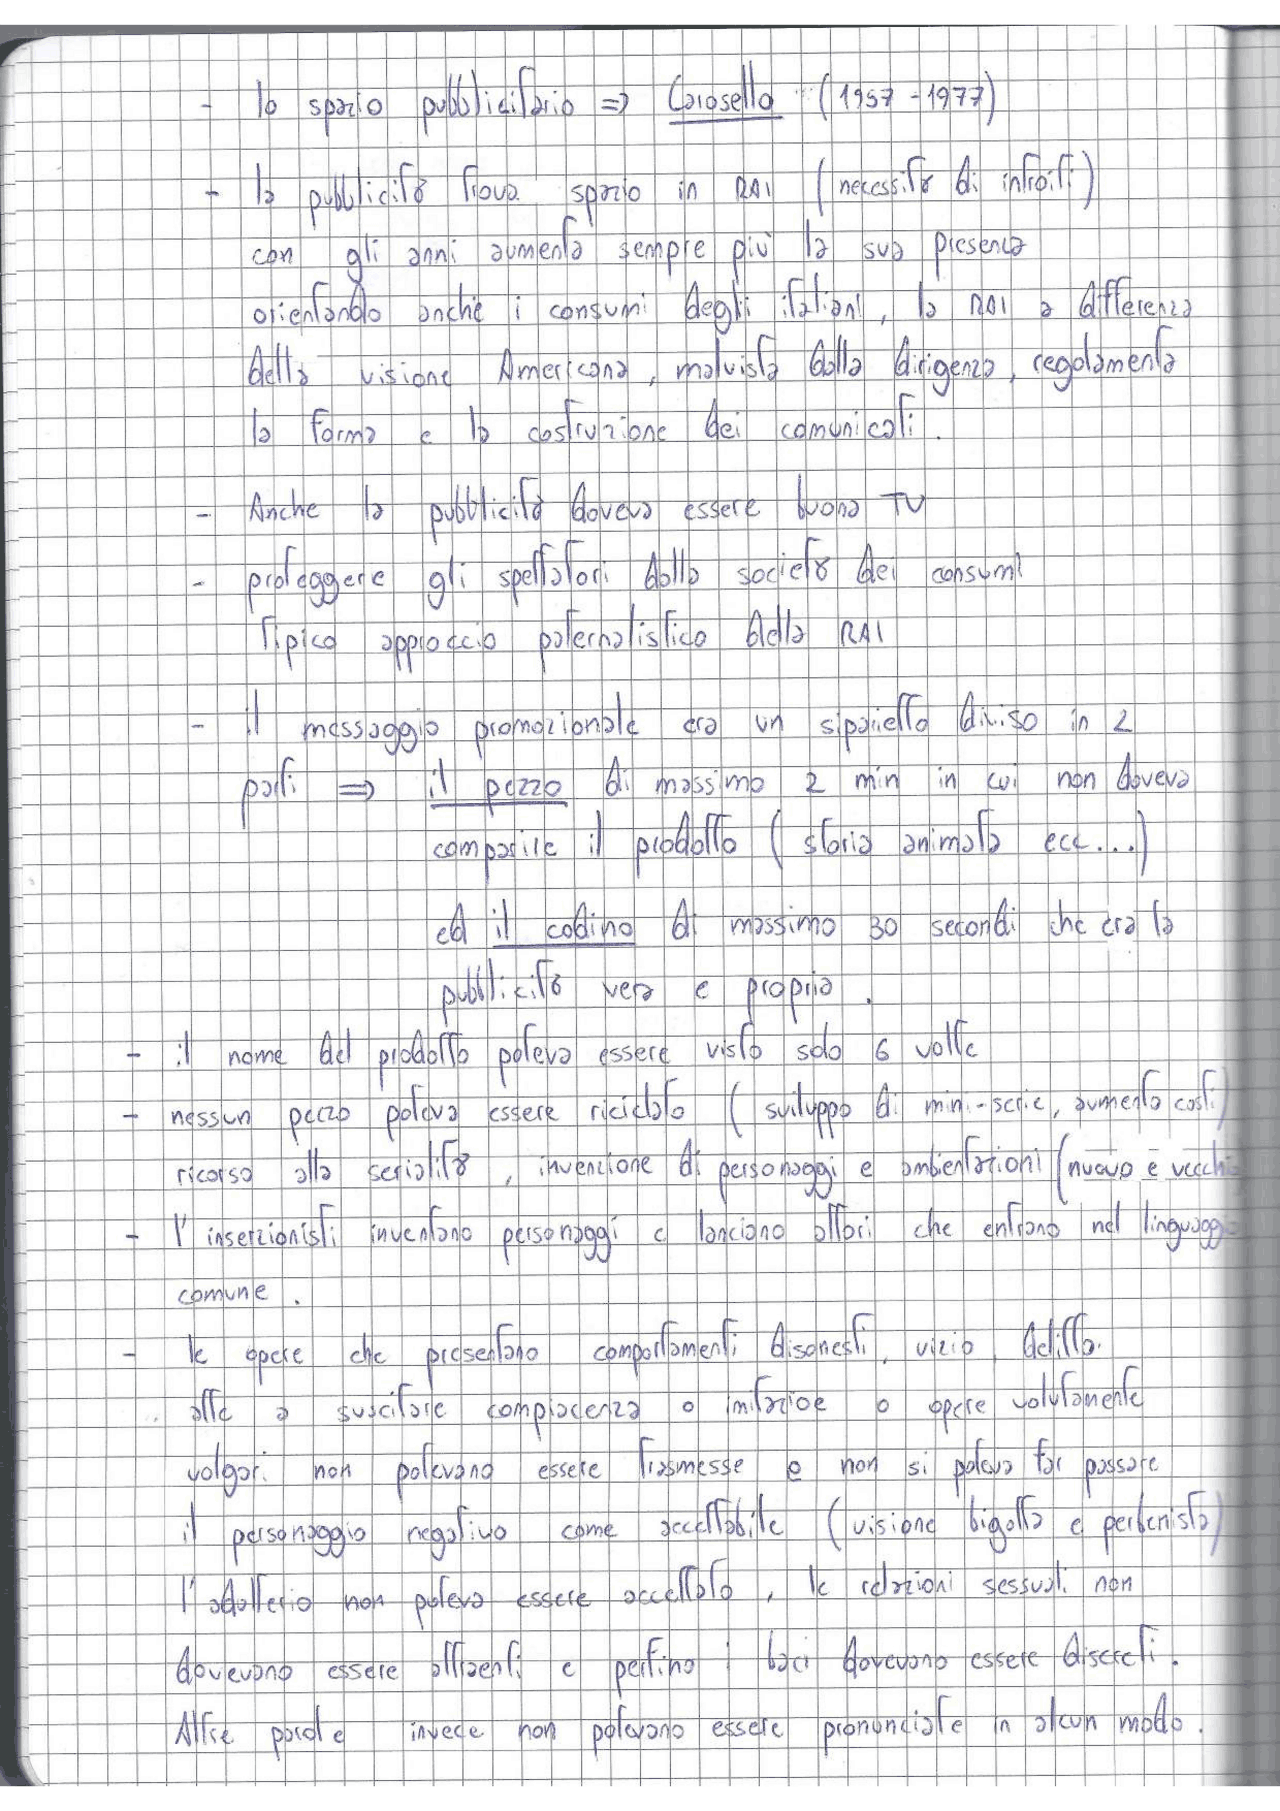 - lo spazio pubblicitario => Carosello (1957 - 1977)
- la pubblicità trova spazio in RAI (necessità di introiti)
con gli anni aumenta sempre più la sua presenza
orientando anche i consumi degli italiani, la RAI a differenza
della visione Americana, malvista dalla dirigenza, regolamenta
la forma e la costruzione dei comunicati.
- Anche la pubblicità doveva essere buona TV
- proteggere gli spettatori dalla società dei consumi
Tipico approccio paternalistico della RAI
- il messaggio promozionale era un siparietto diviso in 2
parti => il pezzo di massimo 2 min in cui non doveva
comparire il prodotto ( storia animata ecc...)
ed il codino di massimo 30 secondi che era la
pubblicità vera e propria .
- il nome del prodotto poteva essere visto solo 6 volte
- nessun pezzo poteva essere riciclato ( sviluppo di mini-serie, aumento costi)
ricorso alla serialità , invenzione di personaggi e ambientazioni (nuovo e vecchi
- l'inserzionisti inventano personaggi e lanciano attori che entrano nel linguaggi
comune .
- le opere che presentano comportamenti disonesti, vizio, delitto.
atte a suscitare compiacenza o imitazioe o opere volutamente
volgari non potevano essere trasmesse e non si poteva far passare
il personaggio negativo come accettabile (visione bigotta e perbenista)
l'adulterio non poteva essere accettato , le relazioni sessuali non
dovevano essere attraenti e perfino i baci dovevano essere discreti.
Altre parole invece non potevano essere pronunciate in alcun modo.